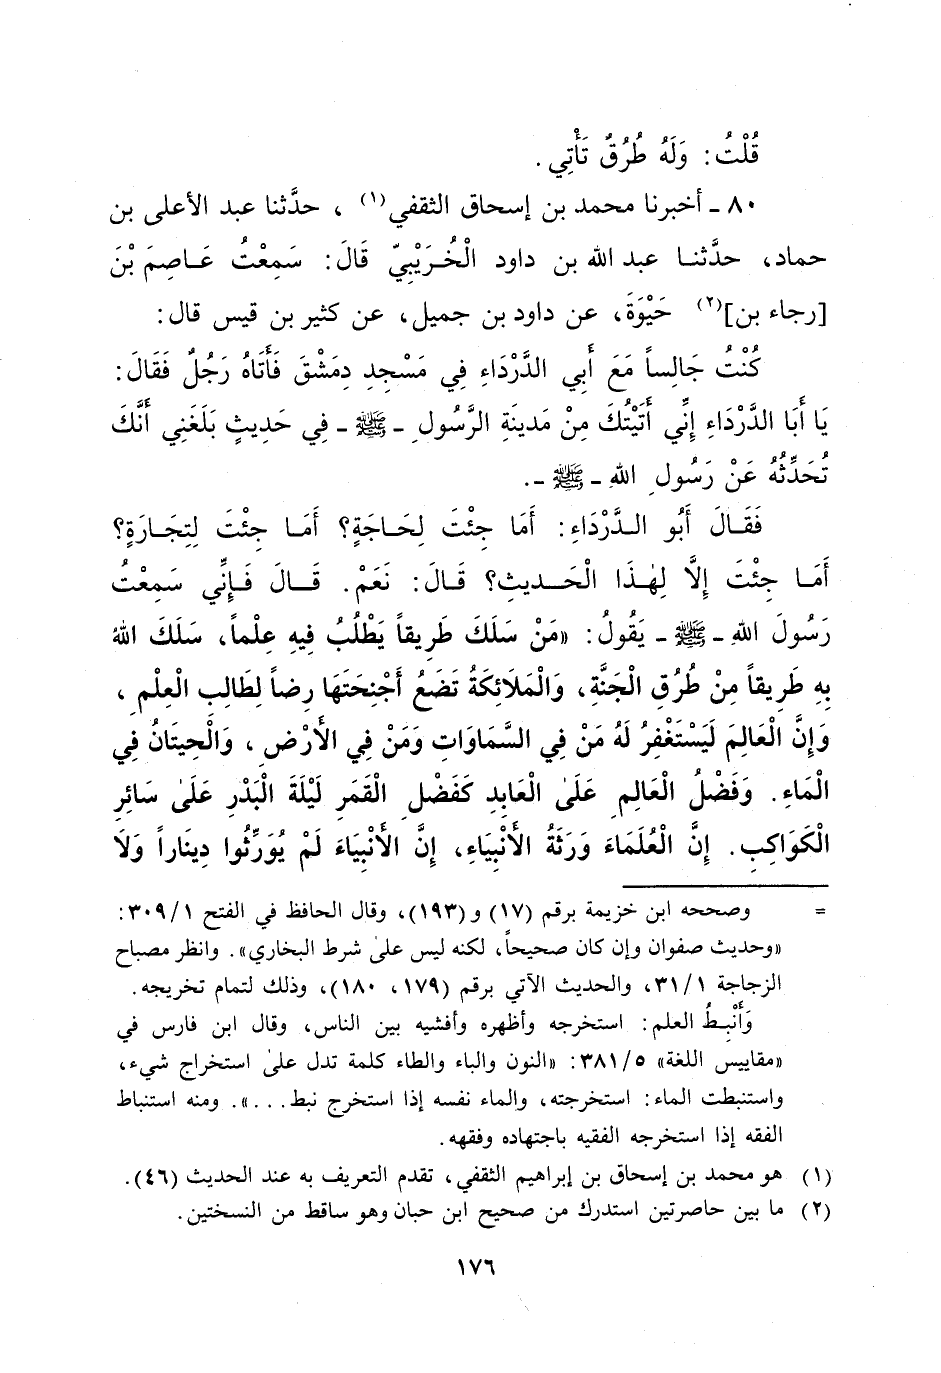 قُلْتُ: وَلَهُ طُرُقٌ تَأْتِي.
٨٠ ـ أخبرنا محمد بن إسحاق الثقفي(١)، حدَّثنا عبد الأعلى بن
حماد، حدَّثنـا عبد الله بن داود الْخُرَيْبِيّ قَالَ: سَمِعْتُ عَـاصِمَ بْنَ
[رجاء بن](٢) حَيْوَةَ، عن داود بن جميل، عن كثير بن قيس قال:
كُنْتُ جَالِساً مَعَ أَبِي الدَّرْدَاءِ فِي مَسْجِدِ دِمَشْقَ فَأَتَاهُ رَجُلٌ فَقَالَ:
يَا أَبَا الدَّرْدَاءِ إِنِّي أَتَيْتُكَ مِنْ مَدِينَةِ الرَّسُولِ ـ ﷺ ـ فِي حَدِيثٍ بَلَغَنِي أَنَّكَ
تُحَدِّثُهُ عَنْ رَسُولِ اللهِ ـ ﷺ ـ.
فَقَـالَ أَبُو الـدَّرْدَاءِ: أَمَا جِئْتَ لِحَـاجَةٍ؟ أَمَـا جِئْتَ لِتِجَـارَةٍ؟
أَمَـا جِئْتَ إِلَّا لِهٰذَا الْحَـدِيثِ؟ قَـالَ: نَعَمْ. قَـالَ فَـإِنِّي سَمِعْتُ
رَسُولَ اللهِ ـ ﷺ ـ يَقُولُ: «مَنْ سَلَكَ طَرِيقاً يَطْلُبُ فِيهِ عِلْماً، سَلَكَ اللهُ
بِهِ طَرِيقاً مِنْ طُرُقِ الْجَنَّةِ، وَالْمَلَائِكَةُ تَضَعُ أَجْنِحَتَهَا رِضاً لِطَالِبِ الْعِلْمِ،
وَإِنَّ الْعَالِمَ لَيَسْتَغْفِرُ لَهُ مَنْ فِي السَّمَاوَاتِ وَمَنْ فِي الْأَرْضِ، وَالْحِيتَانُ فِي
الْمَاءِ. وَفَضْلُ الْعَالِمِ عَلَىٰ الْعَابِدِ كَفَضْلِ الْقَمَرِ لَيْلَةَ الْبَدْرِ عَلَىٰ سَائِرِ
الْكَوَاكِبِ. إِنَّ الْعُلَمَاءَ وَرَثَةُ الْأَنْبِيَاءِ، إِنَّ الْأَنْبِيَاءَ لَمْ يُوَرِّثُوا دِينَاراً وَلَا
= وصححه ابن خزيمة برقم (١٧) و(١٩٣)، وقال الحافظ في الفتح ٣٠٩/١:
«وحديث صفوان وإن كان صحيحاً، لكنه ليس علىٰ شرط البخاري». وانظر مصباح
الزجاجة ٣١/١، والحديث الآتي برقم (١٧٩، ١٨٠)، وذلك لتمام تخريجه.
وَأَنْبِـطُ العلم: استخرجه وأظهره وأفشيه بين الناس، وقال ابن فارس في
«مقاييس اللغة» ٣٨١/٥: «النون والباء والطاء كلمة تدل علىٰ استخراج شيء،
واستنبطت الماء: استخرجته، والماء نفسه إذا استخرج نبط...». ومنه استنباط
الفقه إذا استخرجه الفقيه باجتهاده وفقهه.
(١) هو محمد بن إسحاق بن إبراهيم الثقفي، تقدم التعريف به عند الحديث (٤٦).
(٢) ما بين حاصرتين استدرك من صحيح ابن حبان وهو ساقط من النسختين.
١٧٦